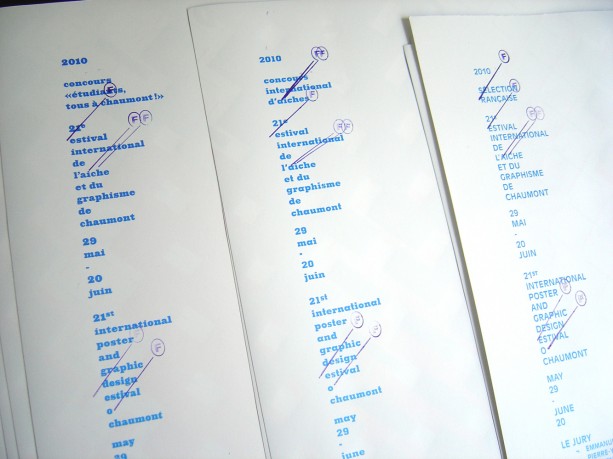 2010
concours
F
«étudiants,
tous à chaumont!»
21e
F F
estival
international
de
l'aiche
et du
graphisme
de
chaumont
29
mai
-
20
juin
21st
international
poster
F
and
F
graphic
design
estival
o
chaumont
may
29
2010
FF
concours
international
d'aiches
F
21e
F F
estival
international
de
l'aiche
et du
graphisme
de
chaumont
29
mai
-
20
juin
21st
international
poster
F
and
F
graphic
design
estival
o
chaumont
may
29
-
june
2010
F
SÉLECTION
F
RANÇAISE
21E
F F
ESTIVAL
INTERNATIONAL
DE
L'AICHE
ET DU
GRAPHISME
DE
CHAUMONT
29
MAI
-
20
JUIN
21ST
INTERNATIONAL
F
POSTER
F
AND
GRAPHIC
DESIGN
ESTIVAL
O
CHAUMONT
MAY
29
-
JUNE
20
LE JURY